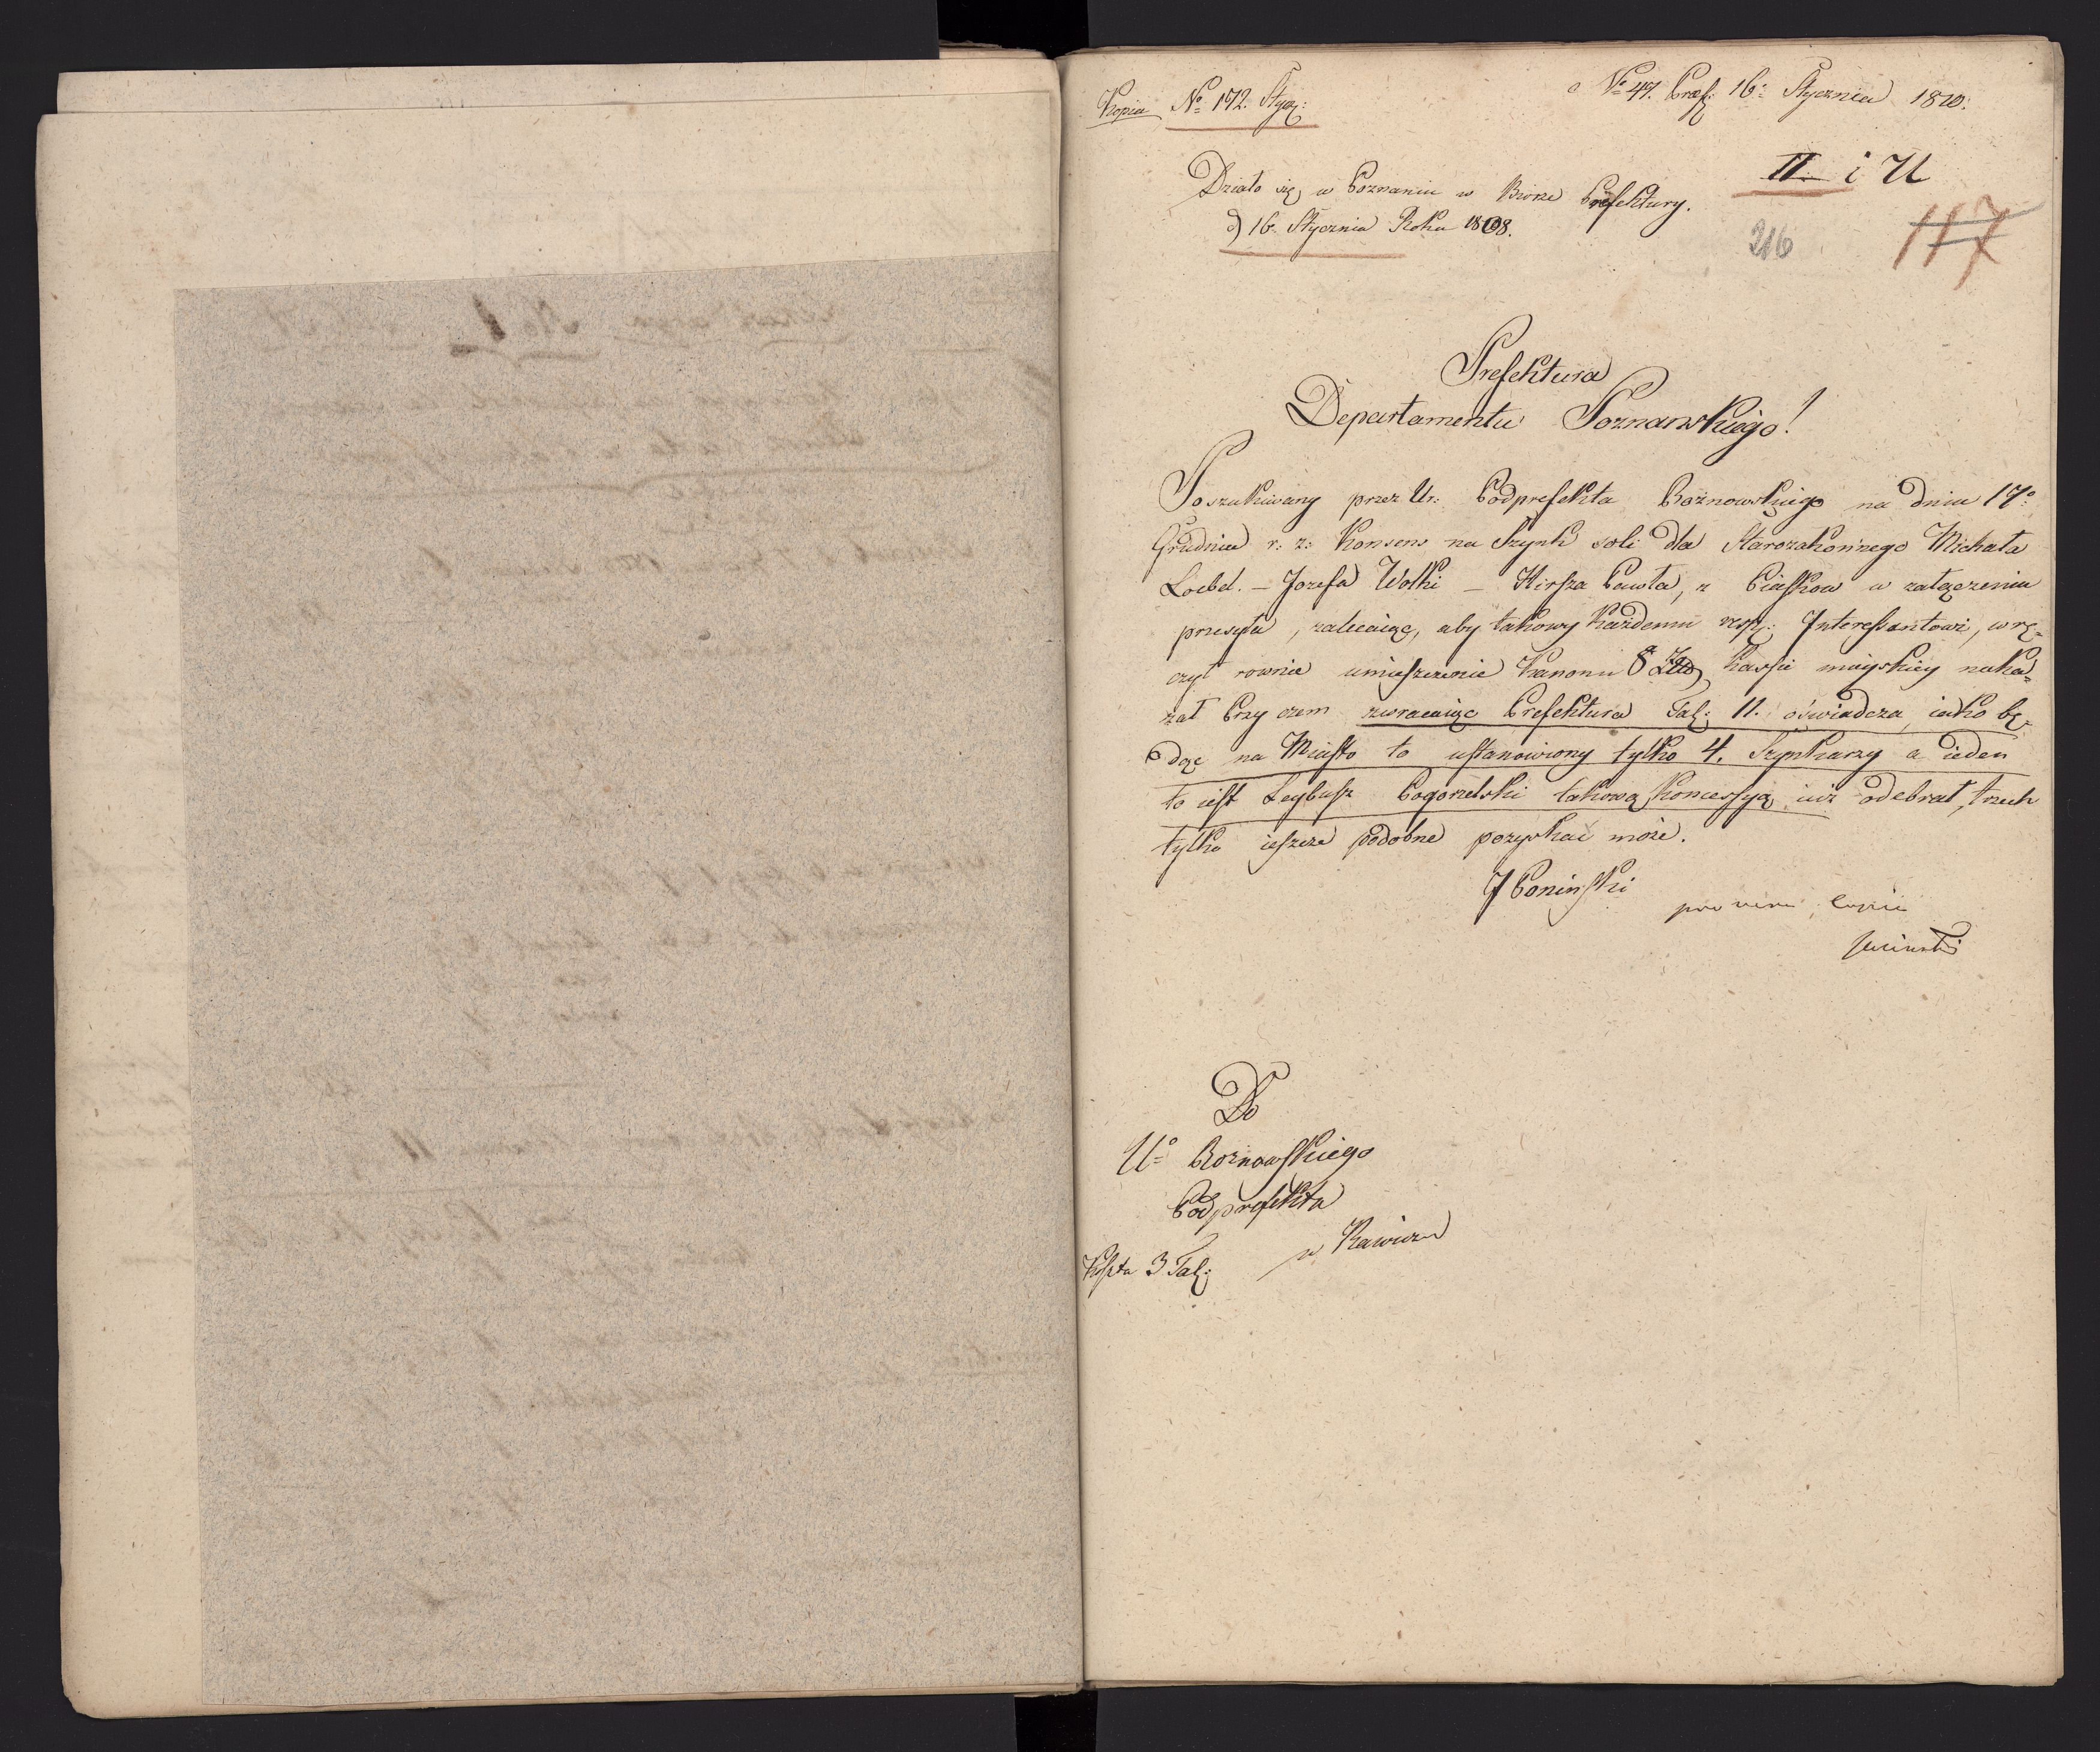 Kopia № 172. Stycz:
№ 47. Praef: 16. Stycznia 1810.
II. i U
Działo się w Poznaniu w Biorze Prefektury.
d) 16. Stycznia Roku 1808.
216
117
Prefektura
Departamentu Poznanskiego!
Poszukiwany przez Ur: Podprefekta Boznowskiego na dniu 17º
Grudnia r: z: Konsens na Szynk soli dla Starozakonnego Michała
Loebel. – Jozefa Wolki – Hirsza Pawła, z Piasków w załączeniu
przesyła, zalecaiąc, aby takowy każdemu resp: Interessantowi, wrę-
czył rownie umieszczenie Kanonu 8 Kassie mieyskiey naka-
zał Przy czem zwracaiąc Prefektura Tal: 11. oświadcza, iako bę-
dąc na Miasto to ustanowiony tylko 4. Szynkarzy a ieden
to iest Leybusz Pogorzelski takową Koncessyą iuż odebrał, trzech
tylko ieszcze podobne pozyskać może.
J Poninski
pro vera copia
Do
Uº Boznowskiego
Podprefekta
w Rawiczu
Kosztu 3 Tal: